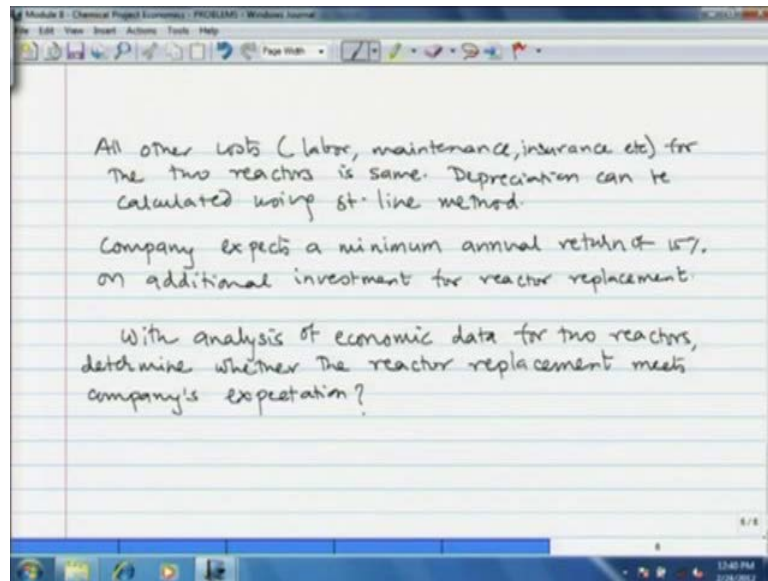 Module 8 - Chemical Project Economics - PROBLEMS - Windows Journal
File Edit View Insert Actions Tools Help
Page Width
All other costs (labor, maintenance, insurance etc) for
the two reactors is same. Depreciation can be
calculated using st. line method.
Company expects a minimum annual return of 15%
on additional investment for reactor replacement.
With analysis of economic data for two reactors,
determine whether the reactor replacement meets
company's expectation?
8
12:40 PM
2/24/2012